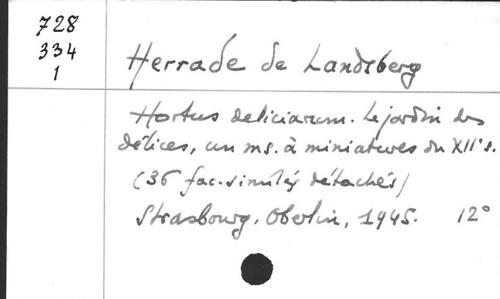 728
334
1
Herrade de Landsberg
Hortus deliciarum. Le jardin des
délices, un ms. à miniatures du XIIe s.
(36 fac-similés détachés)
Strasbourg. Oberlin, 1945. 12°